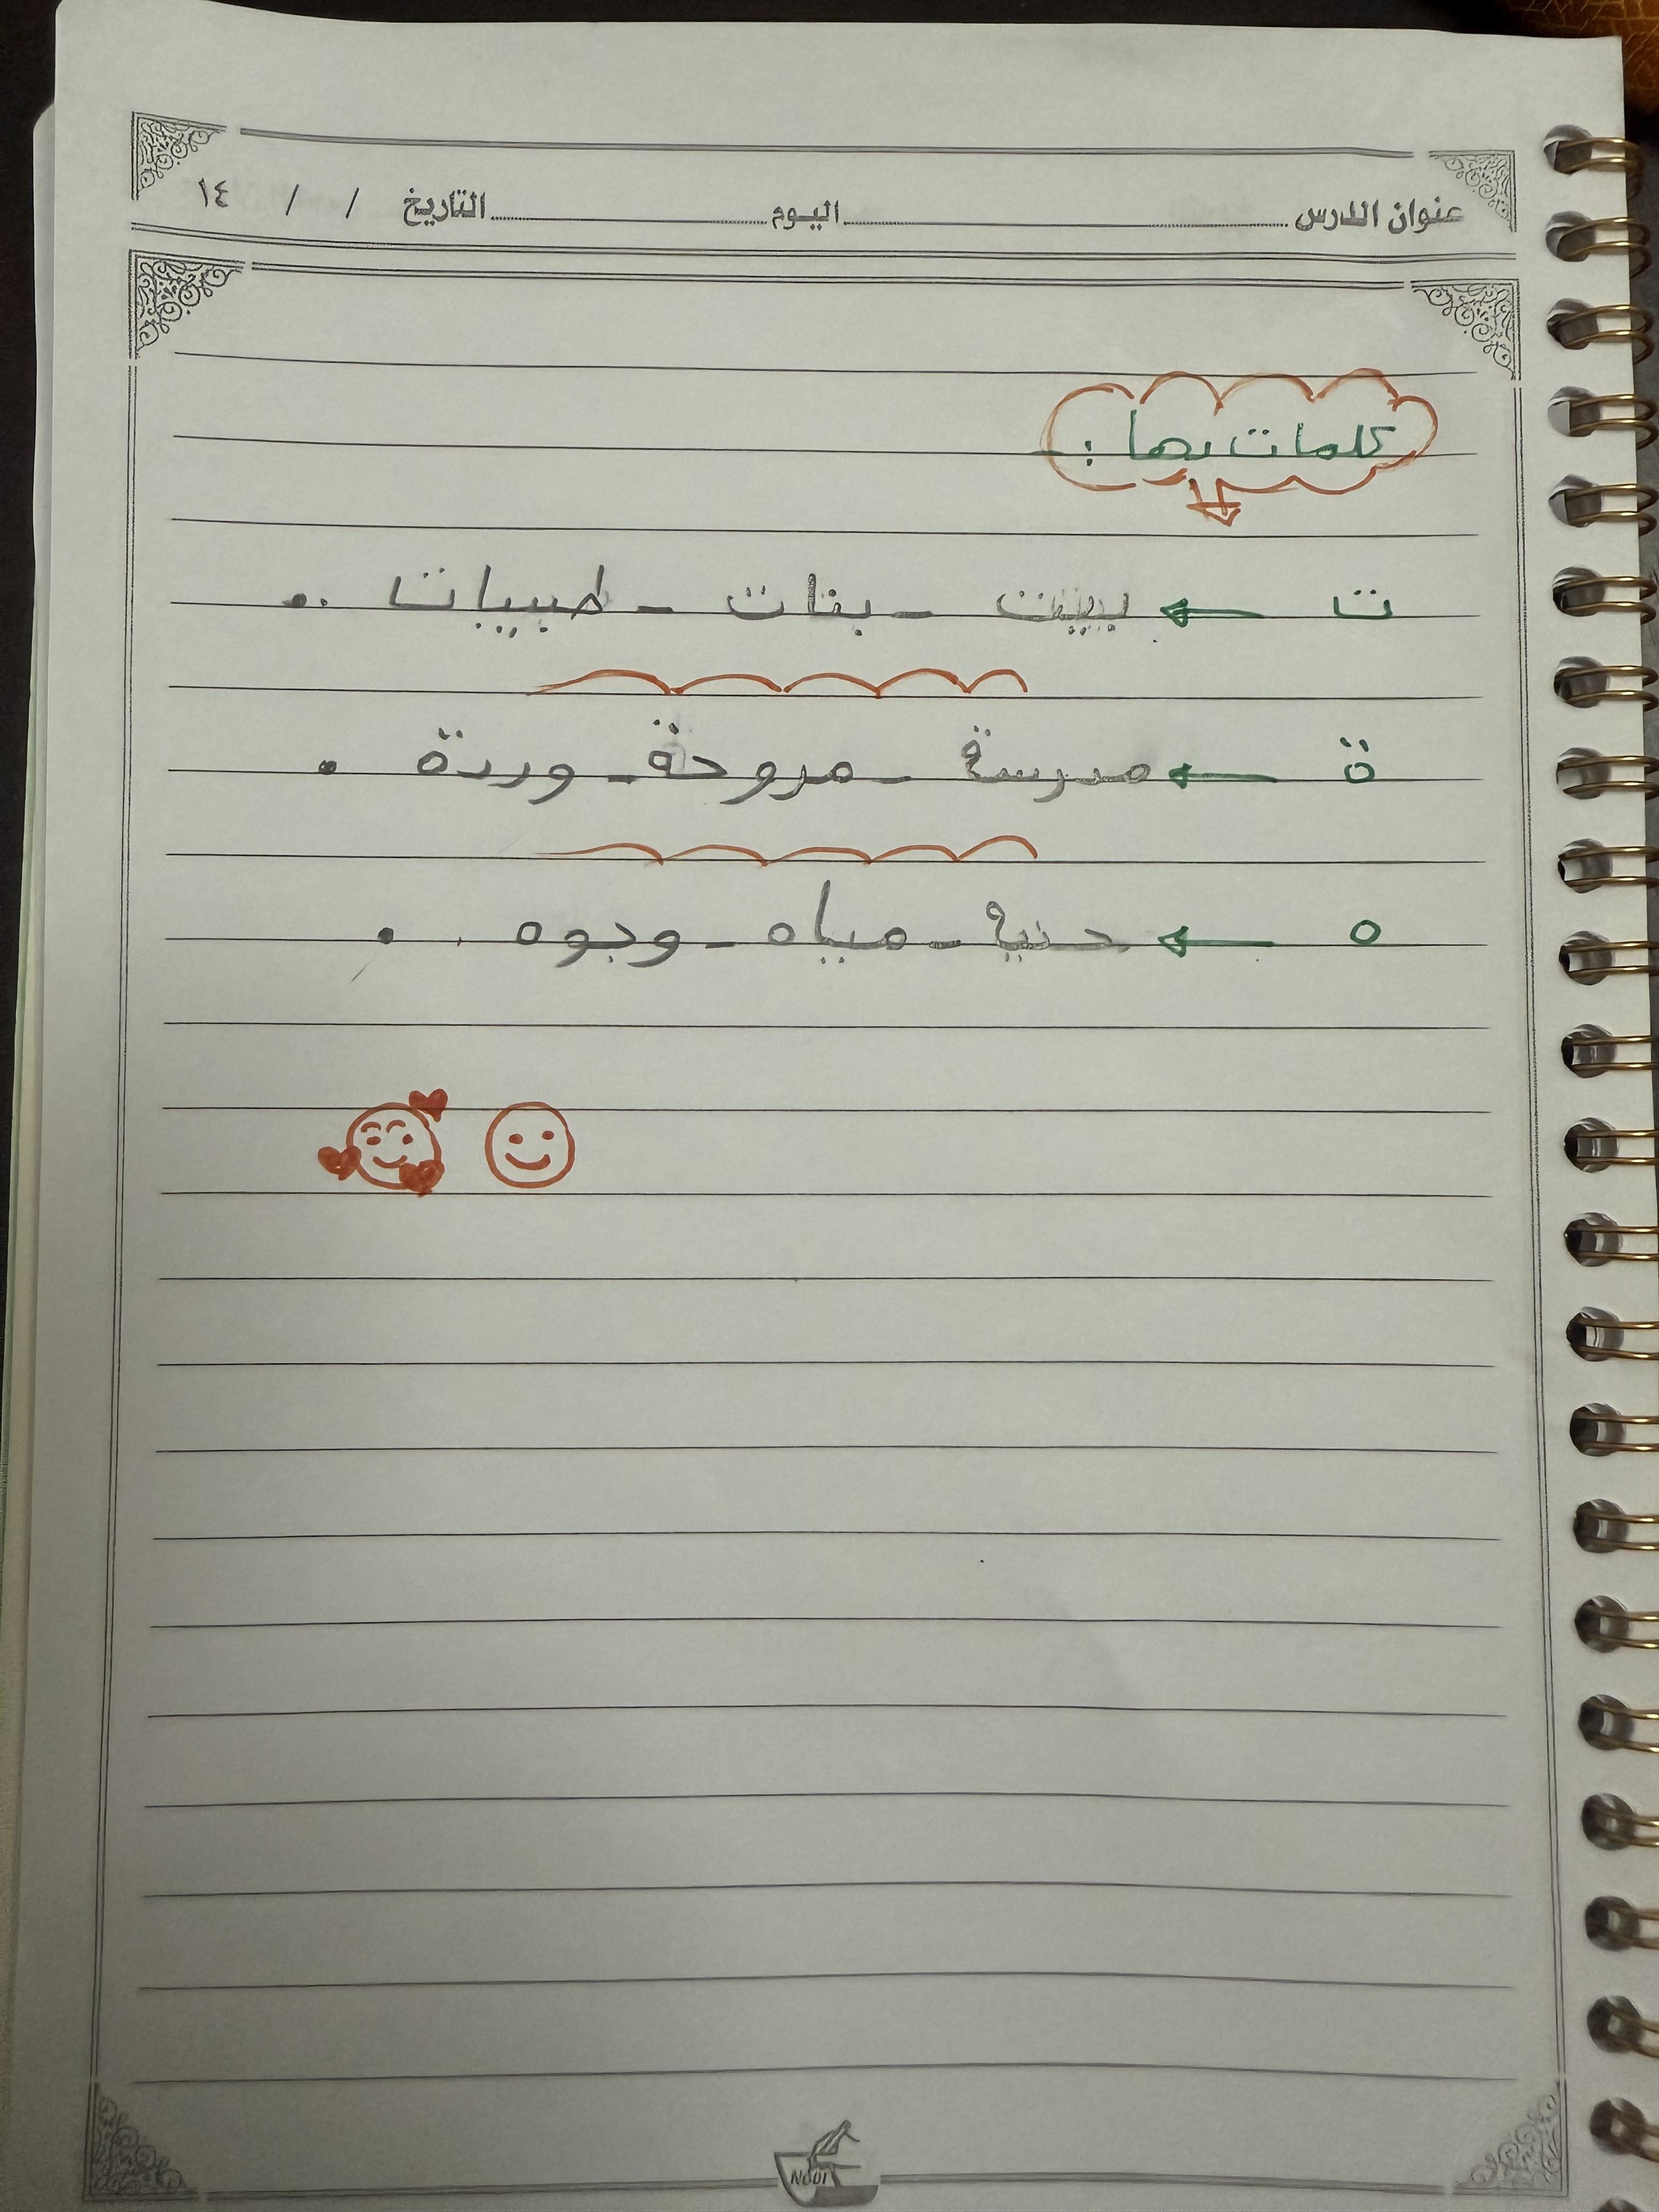 عنوان الدرس اليوم التاريخ / / ١٤
كلمات بها :
ت ← بيت - بنات - طبيبات .
ة ← مدرسة - مروحة - وردة .
ه ← - مياه - وجوه .
NOOR